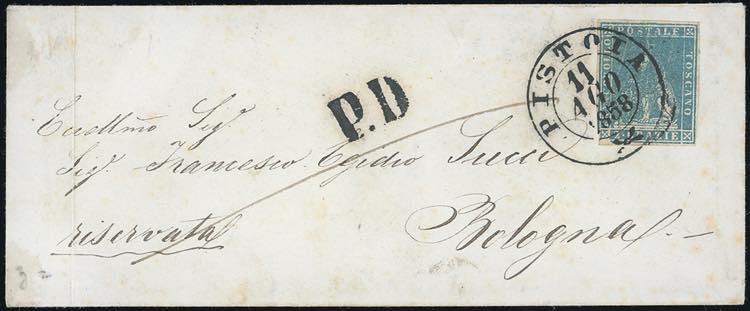 PISTOIA
11
AGO
1858
FRANCOBOLLO POSTALE TOSCANO
P.D
Eccellmo Sigr
Sigr. Francesco Egidio Succi
riservata
Bologna